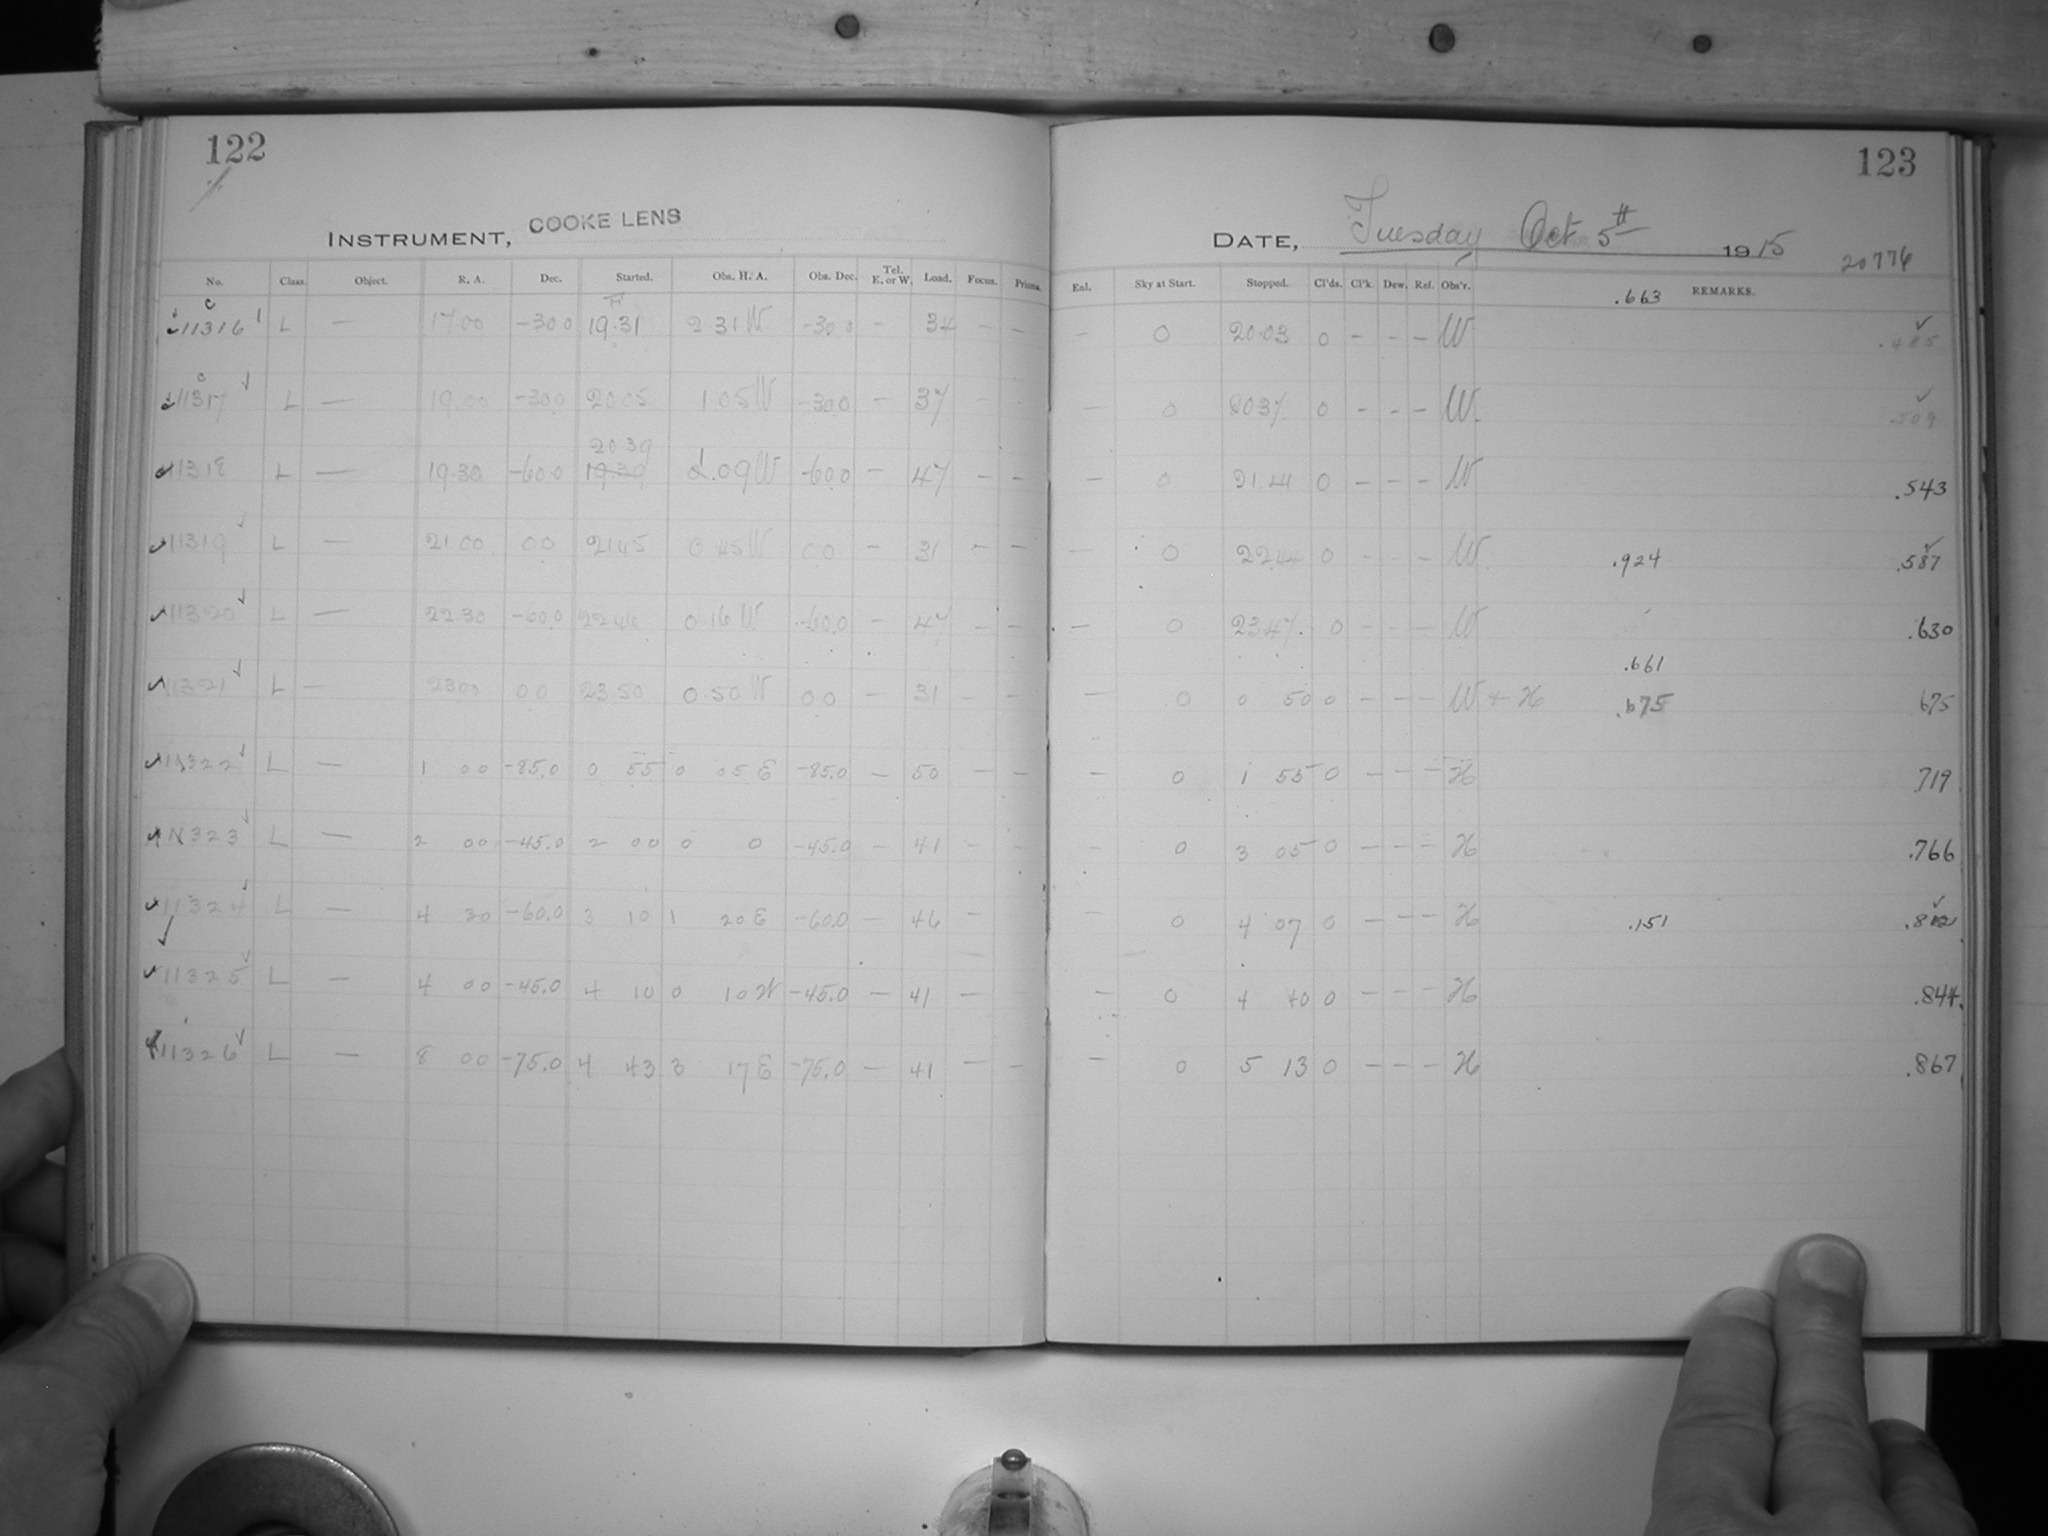 122
INSTRUMENT, COOKE LENS
No. Class. Object. R. A. Dec. Started. Obs. H. A. Obs. Dec. Tel. E. or W. Load. Focus. Prisms.
11316 L — 17.00 -30 0 19.31 2 31 W -30 0 — 34 — —
11317 L — 19.00 -30.0 20 05 1.05 W -30.0 — 37 — —
20 39
11318 L — 19.30 -60.0 19.30 1.09 W -60.0 — 47 — —
11319 L — 21.00 0 0 21.45 0 45 W 0 0 — 31 — —
11320 L — 22.30 -60.0 22 46 0.16 W -60.0 — 47 — —
11321 L — 23 00 0 0 23.50 0.50 W 0 0 — 31 — —
11322 L — 1 00 -85.0 0 55 0 05 E -85.0 — 50 — —
11323 L — 2 00 -45.0 2 00 0 0 -45.0 — 41 — —
11324 L — 4 30 -60.0 3 10 1 20 E -60.0 — 46 —
11325 L — 4 00 -45.0 4 10 0 10 W -45.0 — 41 — —
11326 L — 8 00 -75.0 4 43 3 17 E -75.0 — 41 — —
123
DATE, Tuesday Oct 5th 1915
20776
Enl. Sky at Start. Stopped. Cl'ds. Cl'k. Dew. Ref. Obs'r. .663 REMARKS.
— 0 20.03 0 — — — W .485
— 0 20 37. 0 — — — W. .509
— 0 21.41 0 — — — W .543
— 0 22.44 0 — — — W. .924 .587
— 0 23 47. 0 — — — W .630
.661
— 0 0 50 0 — — — W + H .675 675
— 0 1 55 0 — — — H .719
— 0 3 05 0 — — — H .766
— 0 4 07 0 — — — H .151 .812
— 0 4 40 0 — — — H .844
— 0 5 13 0 — — — H .867